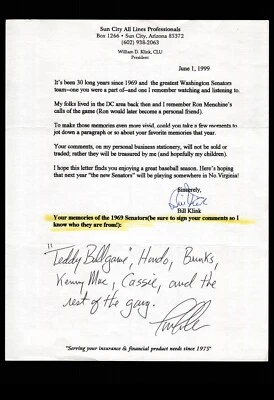 Sun City All Lines Professionals
Box 1266 • Sun City, Arizona 85372
(602) 938-2063
William D. Klink, CLU
President
June 1, 1999
It's been 30 long years since 1969 and the greatest Washington Senators
team--one you were a part of--and one I remember watching and listening to.
My folks lived in the DC area back then and I remember Ron Menchine's
calls of the game (Ron would later become a personal friend).
To make those memories even more vivid, could you take a few moments to
jot down a paragraph or so about your favorite memories that year.
Your comments, on my personal business stationery, will not be sold or
traded; rather they will be treasured by me (and hopefully my children).
I hope this letter finds you enjoying a great baseball season. Here's hoping
that next year "the new Senators" will be playing somewhere in No. Virginia!
Sincerely,
Bill Klink
Bill Klink
Your memories of the 1969 Senators(be sure to sign your comments so I
know who they are from!):
"Teddy Ballgame", Hondo, Bunks,
Kenny Mac, Cassie, and the
rest of the gang.
"Serving your insurance & financial product needs since 1975"